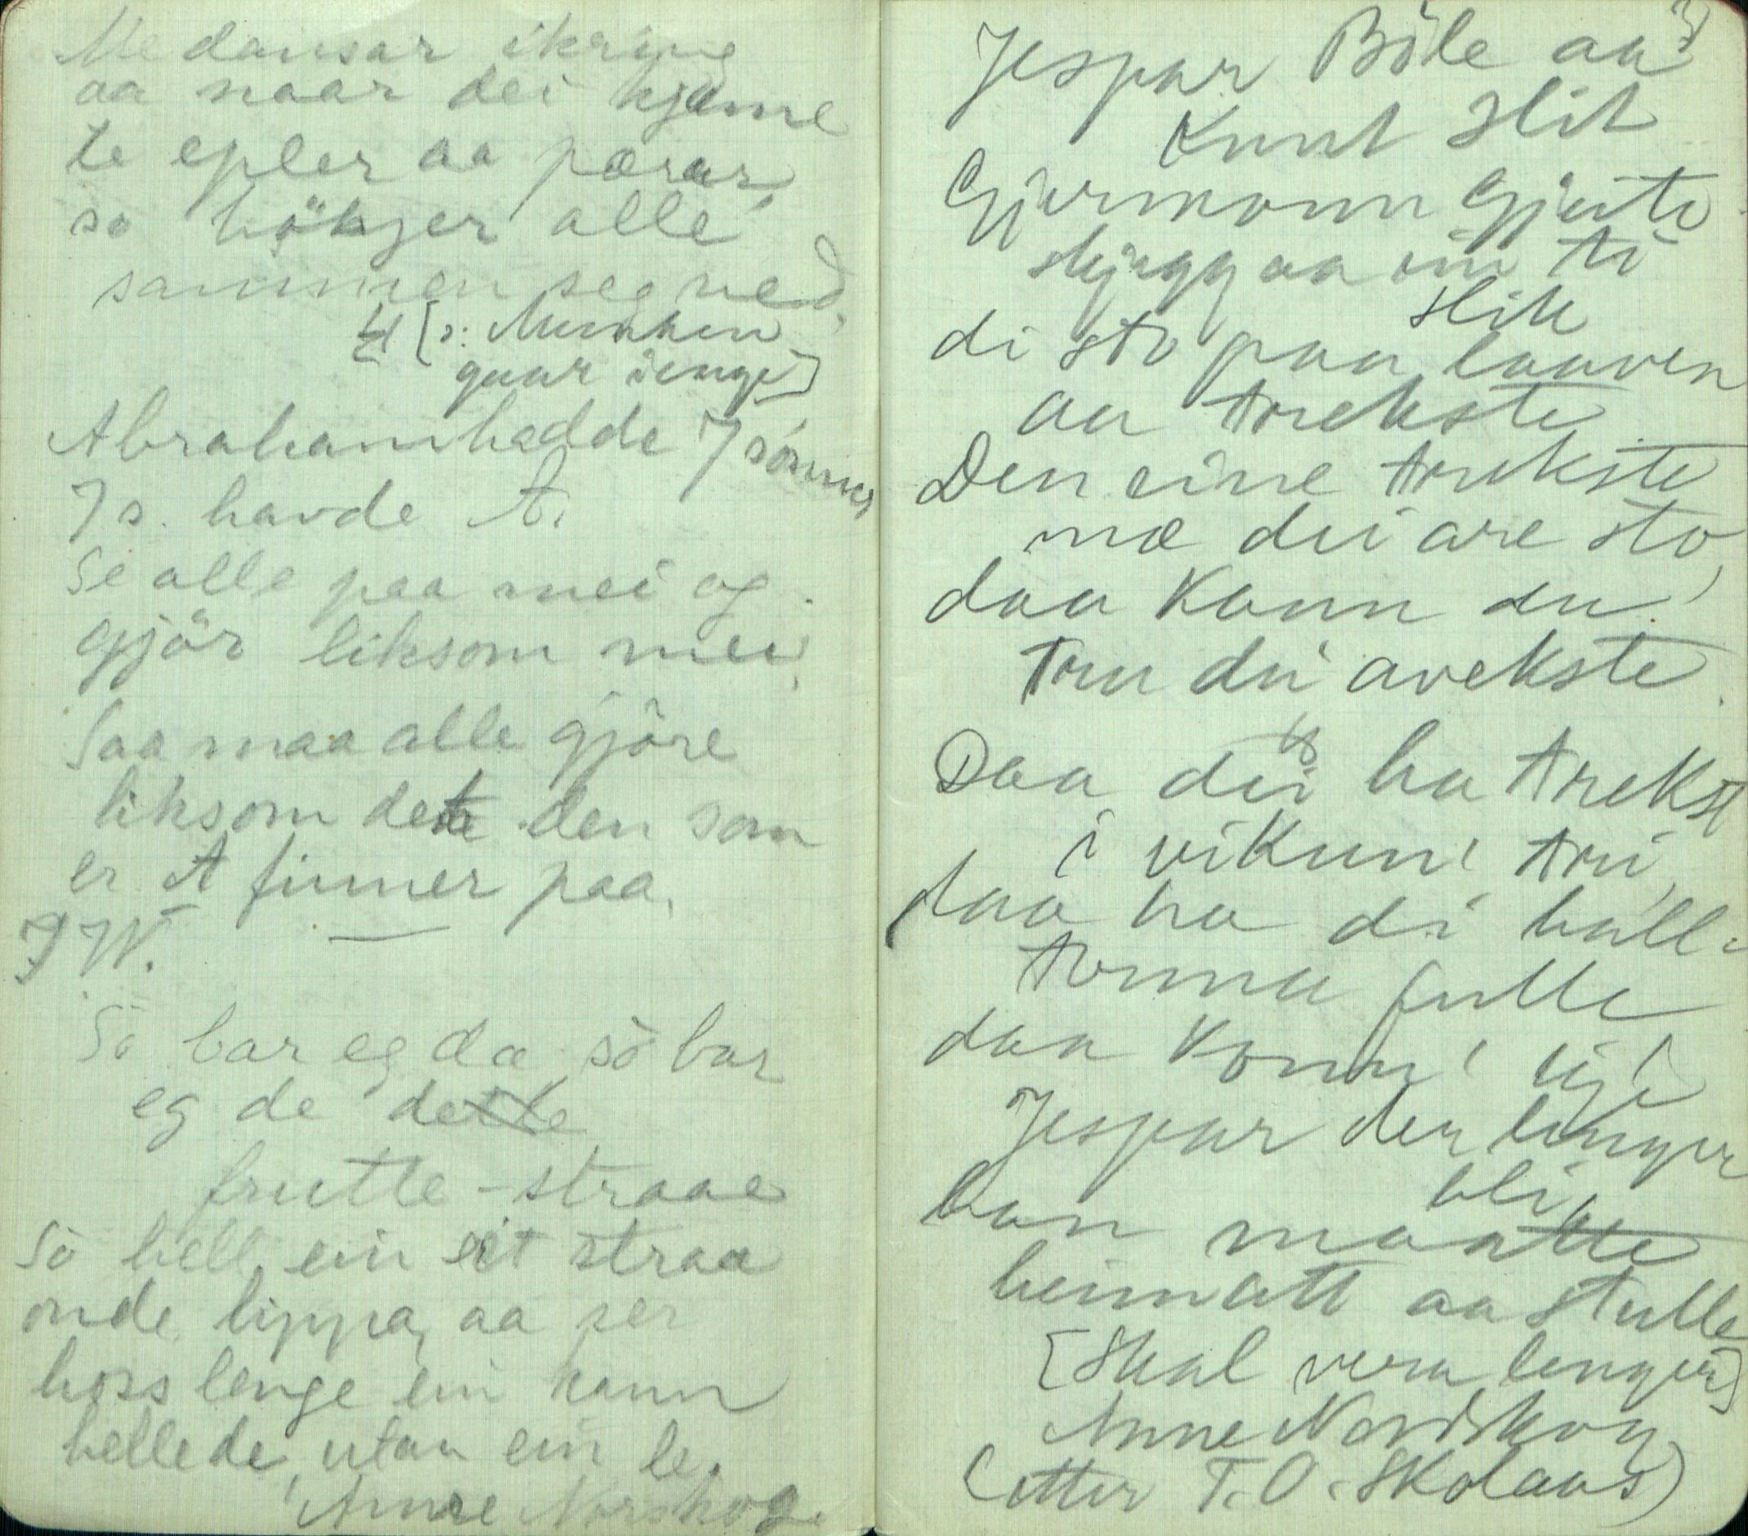 Me dansar ikring
aa naar dei kjeme
te epler aa pærar,
so högjer alle
sammen seg ned.
[ɔ: Munken
gaar i enge]
Abraham hadde 7 sönner
7 s. havde A.
Se alle paa mei og
gjör liksom mei.
Saa maa alle gjöre
liksom dette den som
er A finner paa.
JW.
So bar eg dæ so bar
eg de dette
frutte-straae
So hell ein eit straa
onde lippa, aa ser
hoss lenge ein kann
helle de, utan ein le.
Anne Norskog.
3)
Jespar Böle aa
Knut Slit
Gjermonn Gjeite
skjegg aa ein ti
slik
di sto paa laaven
aa treskte
Den eine treskte
mæ dei are sto,
daa kann du
tru dei avekste.
Daa dei ha trekst
i vikun' tri,
daa ha di hall-
tonna fulle
daa konn' ikje
Jespar der lenger
bli,
han maatte
heimatt aa stulle
[Skal vera lenger]
Anne Nordskog
(etter T. O. Skolaas)